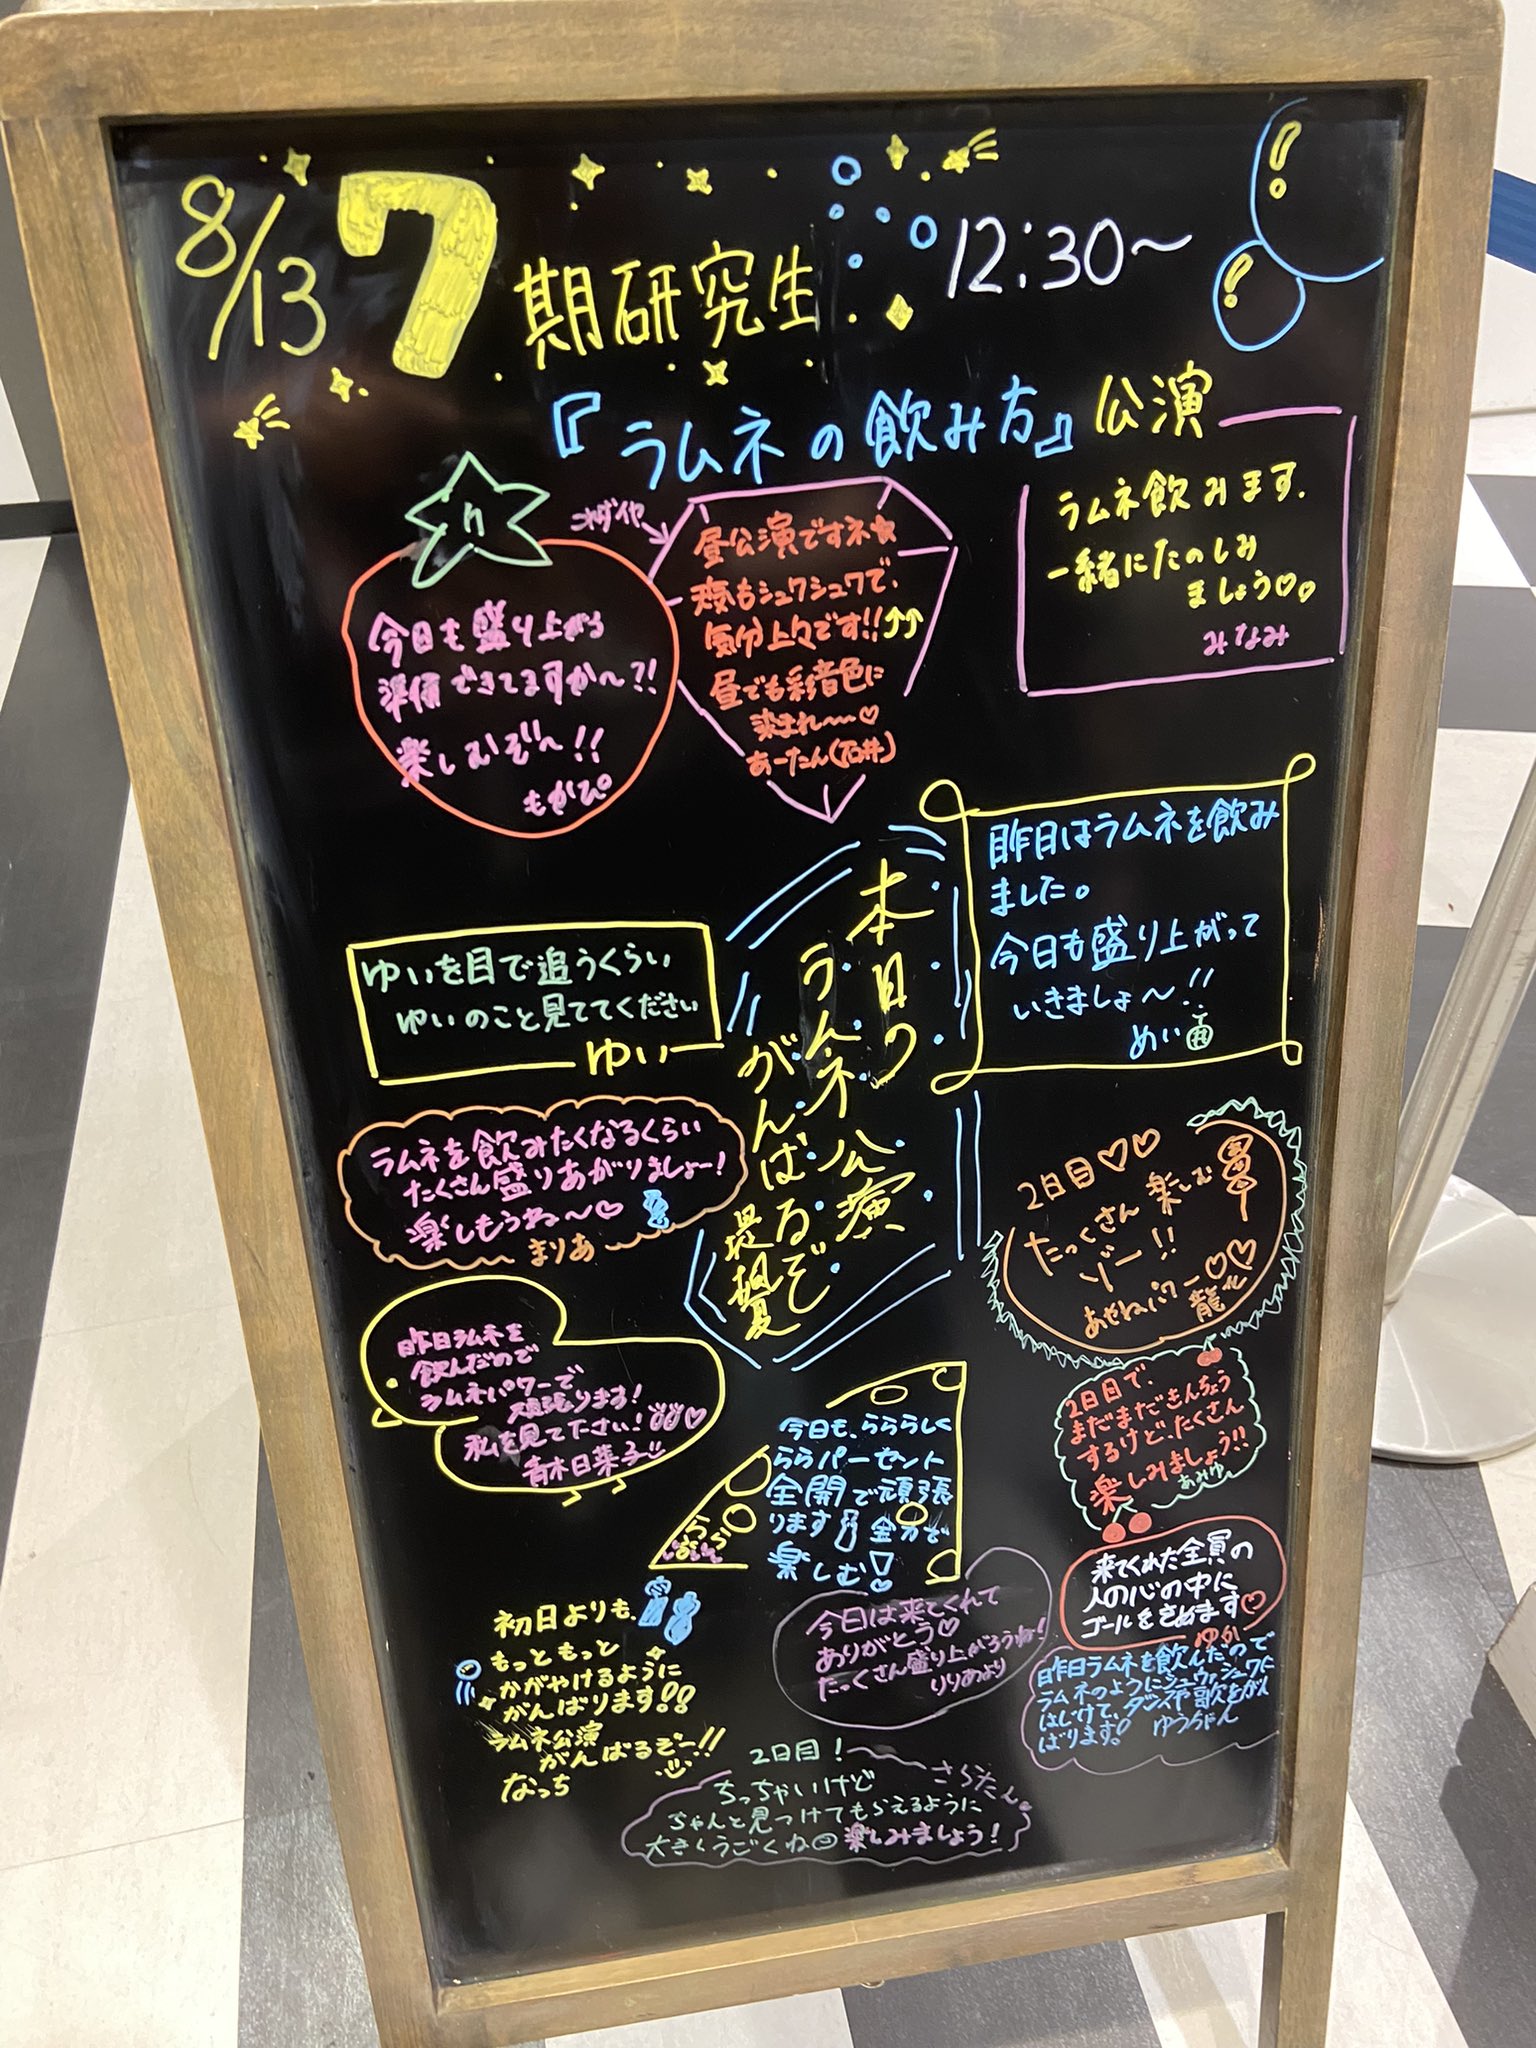 8/13
7期研究生
12:30〜
『ラムネの飲み方』公演
ラムネ飲みます.
一緒にたのしみ
ましょう♡♡
みなみ
これダイヤ→
昼公演ですネ★
夜もシュワシュワで、
気分上々です!!↑↑
昼でも彩音色に
染まれ〜〜♡
あーたん(石井)
今日も盛り上がる
準備できてますか〜?!
楽しむぞ〜!!
もかぴ
昨日はラムネを飲み
ました。
今日も盛り上がって
いきましょ〜!!
めい
本日の
ラムネ公演
がんばるぞ
ゆいを目で追うくらい
ゆいのこと見ててください
ゆい
ラムネを飲みたくなるくらい
たくさん盛りあがりましょー!
楽しもうね〜♡
まりあ
2日目♡♡
たっくさん楽しむ
ゾー!!
あせねパワー♡♡
昨日ラムネを
飲んだので
ラムネパワーで
頑張ります!
私を見て下さい!
青木日菜子
2日目で、
まだまだきんちょう
するけど、たくさん
楽しみましょう!!
あみゆ
今日も、らららしく
ららパーセント
全開で頑張
ります! 全力で
楽しむ!
らら
来てくれた全員の
人の心の中に
ゴールをきめます♡
ゆか
初日よりも、
もっともっと
かがやけるように
がんばります!!
ラムネ公演
がんばるぞー!!
なっち
今日は来てくれて
ありがとう♡
たっくさん盛り上がろうね!
りりあより
昨日ラムネを飲んだので
ラムネのようにシュワシュワに
はじけて、ダンスや歌をがん
ばります! ゆうちゃん
2日目!
さらたん。
ちっちゃいけど
ちゃんと見つけてもらえるように
大きくうごくね 楽しみましょう!